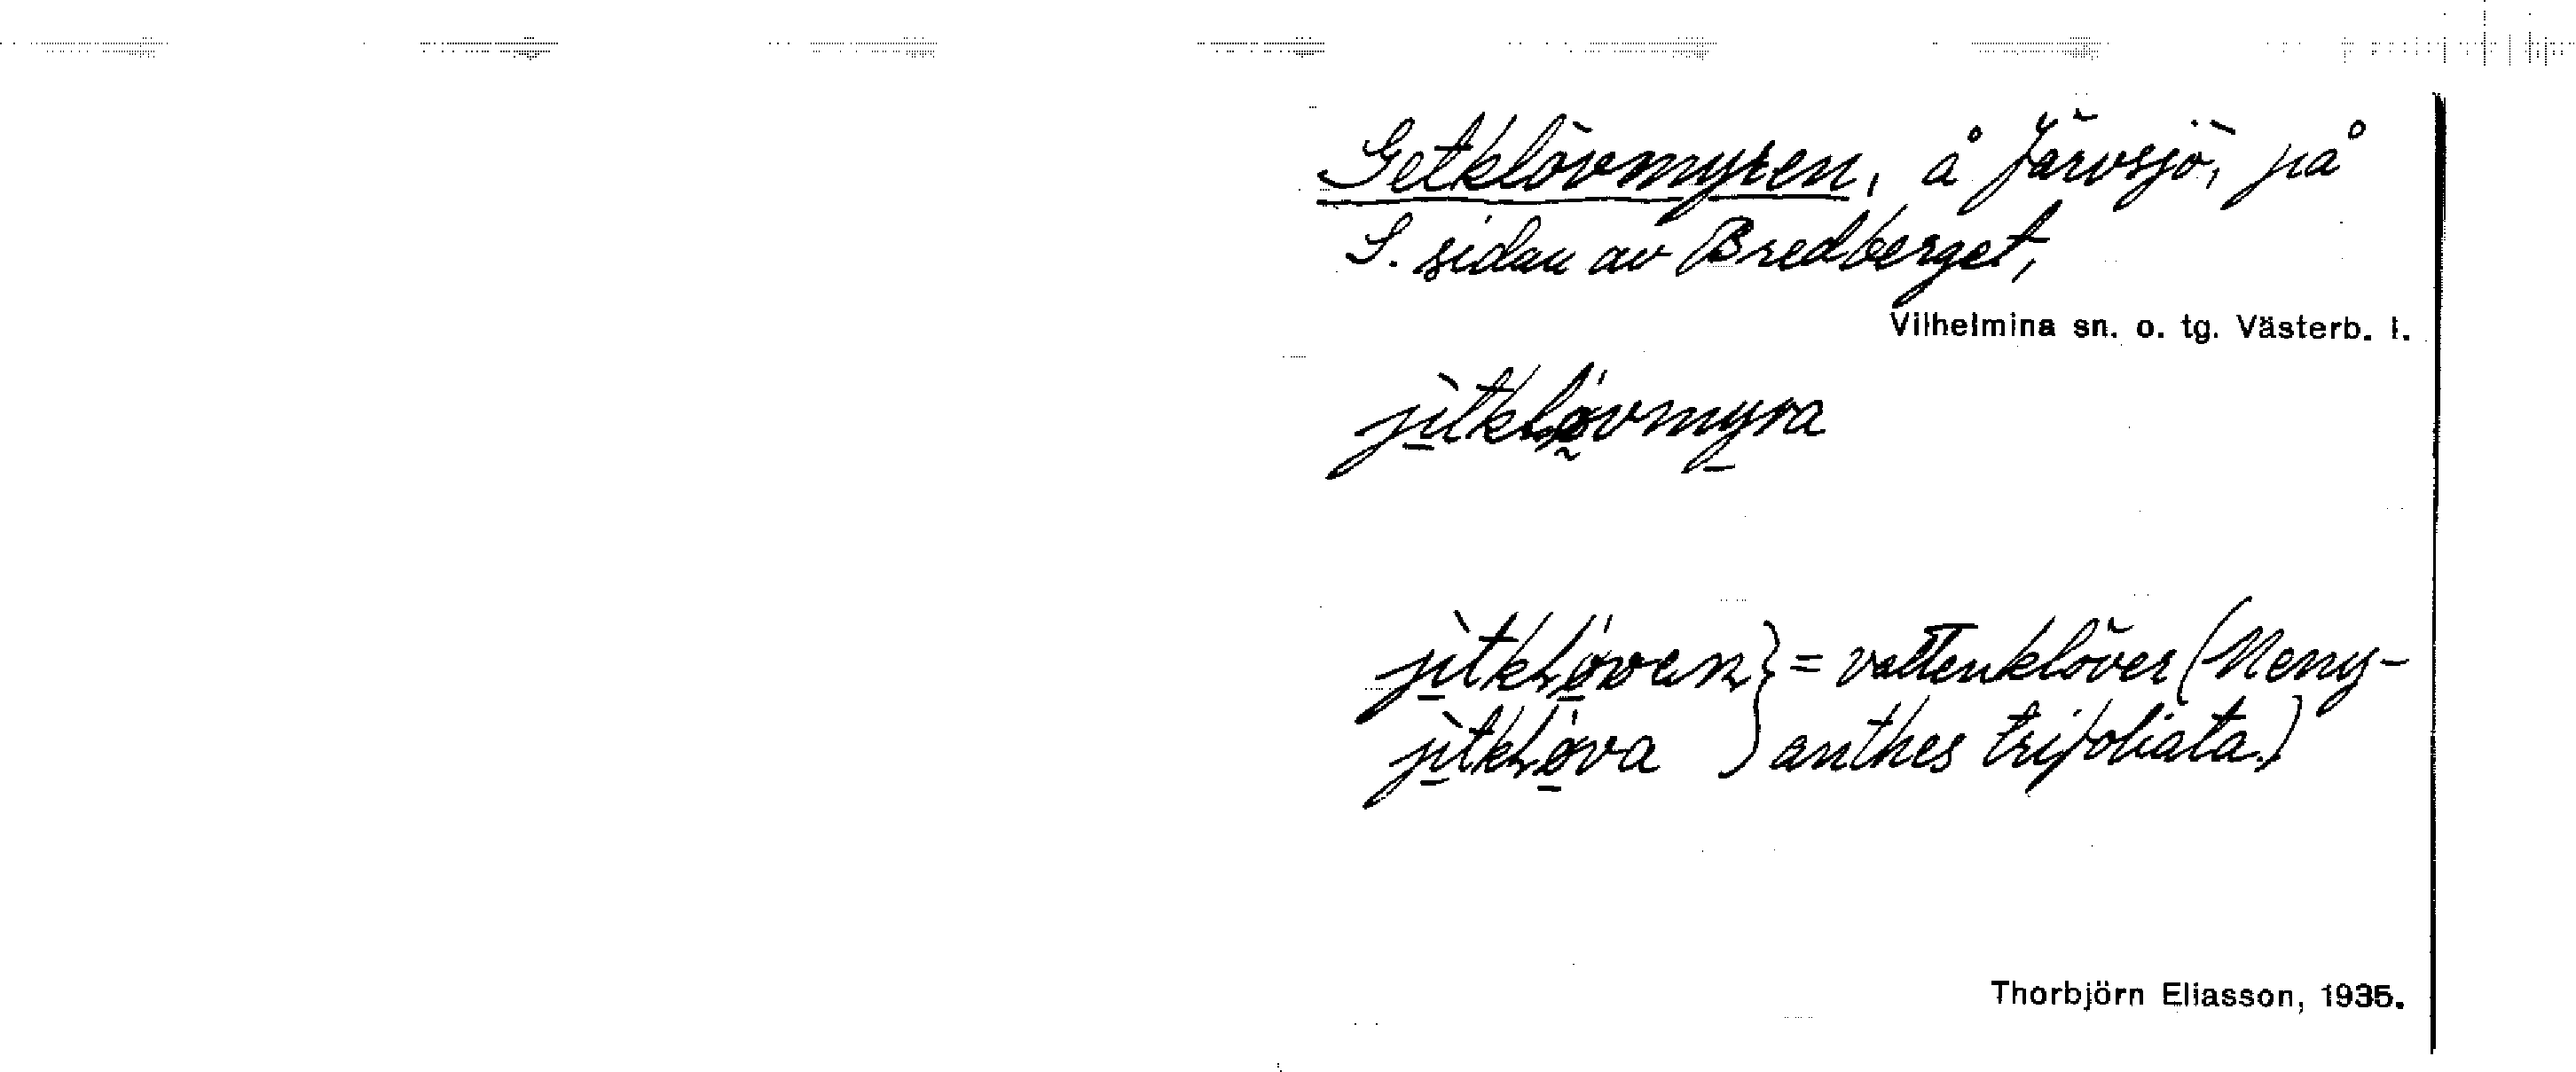 Getklövmyren, å Järvsjö, på
S. sidan av Bredberget,
Vilhelmina sn. o. tg. Västerb. l.
jìtklövmyra
jìtklöven } = vattenklöver (Meny-
jìtklöva } anthes trifoliata.)
Thorbjörn Eliasson, 1935.